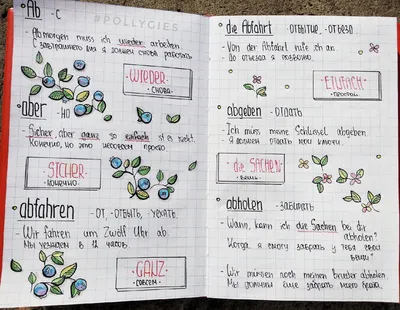 Ab - С
#POLLYGIES
- Ab morgen muss ich wieder arbeiten
С завтрашнего дня я должен снова работать
WIEDER
- СНОВА -
aber - НО
- Sicher, aber ganz so einfach ist es nicht.
Конечно, но это не совсем просто
SICHER
- КОНЕЧНО -
abfahren - ОТ, ОТБЫТЬ, УЕХАТЬ.
- Wir fahren um zwölf Uhr ab.
Мы уезжаем в 12 часов.
GANZ
- СОВСЕМ -
die Abfahrt - ОТБЫТИЕ, ОТЪЕЗД
- Vor der Abfahrt rufe ich an.
До отъезда я позвоню.
EINFACH
- ПРОСТОЙ -
abgeben - ОТДАТЬ
- Ich muss meine Schlüssel abgeben
Я должен отдать мои ключи.
die SACHEN
- ВЕЩЬ -
abholen - ЗАБИРАТЬ
- Wann kann ich die Sachen bei dir
abholen?
Когда я смогу забрать у тебя свои
вещи?
- Wir müssen noch meinen Bruder abholen.
Мы должны ещё забрать моего брата.